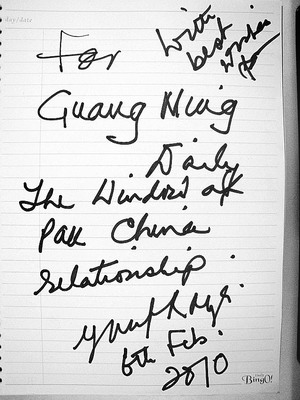 day/date
For
With
best
wishes
for
Guang Ming
Daily
The Window of
Pak China
relationship.
6th Feb.
2010
BingO!